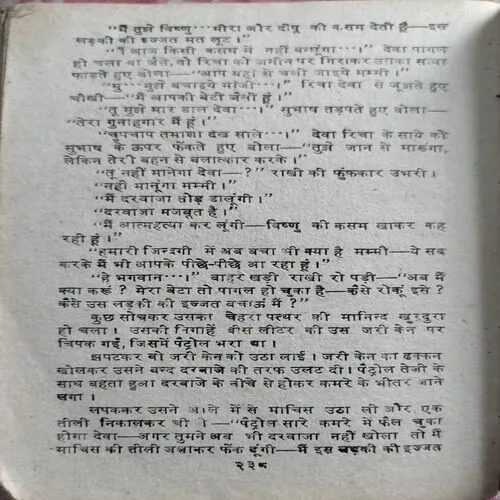 "मैं तुझे विष्णु···मीरा और दीपू की कसम देती है—इस
लड़की की इज्जत मत लूट।"
"मैं आज किसी कसम में नहीं बन्धूंगा···।" देवा पागल
हो चला था जैसे, वो रिचा को जमीन पर गिराकर उसका साया
फाड़ते हुए बोला—"आप यहां से चली जाइये मम्मी।"
"मु···मुझे बचाइये मांजी···।" रिचा देवा से जूझते हुए
चीखी—"मैं आपकी बेटी जैसी हूं।"
"तू मुझे मार डाल देवा···।" सुभाष तड़पते हुए बोला—
"तेरा गुनाहगार मैं हूं।"
"चुपचाप तमाशा देख साले···।" देवा रिचा के साये को
सुभाष के ऊपर फेंकते हुए बोला—"तुझे जान से मारूंगा,
लेकिन तेरी बहन से बलात्कार करके।"
"तू नहीं मानेगा देवा—?" राखी की फुंफकार उभरी।
"नहीं मानूंगा मम्मी।"
"मैं दरवाजा तोड़ डालूंगी।"
"दरवाजा मजबूत है।"
"मैं आत्महत्या कर लूंगी—विष्णु की कसम खाकर कह
रही हूं।"
"हमारी जिन्दगी में अब बचा भी क्या है मम्मी—ये सब
करके मैं भी आपके पीछे-पीछे आ रहा हूं।"
"हे भगवान···।" बाहर खड़ी राखी रो पड़ी—"अब मैं
क्या करूं? मेरा बेटा तो पागल हो चुका है—कैसे रोकूं इसे?
कैसे उस लड़की की इज्जत बचाऊं मैं?"
कुछ सोचकर उसका चेहरा पत्थर की मानिन्द खुरदुरा
हो चला। उसकी निगाहें बीस लीटर की उस जरी केन पर
चिपक गईं, जिसमें पैट्रोल भरा था।
झपटकर वो जरी केन को उठा लाई। जरी केन का ढक्कन
खोलकर उसने बन्द दरवाजे की तरफ उलट दी। पैट्रोल तेजी के
साथ बहता हुआ दरवाजे के नीचे से होकर कमरे के भीतर जाने
लगा।
लपककर उसने आले में से माचिस उठा ली और एक
तीली निकालकर बोली—"पैट्रोल सारे कमरे में फैल चुका
होगा देवा—अगर तुमने अब भी दरवाजा नहीं खोला तो मैं
माचिस की तीली जलाकर फेंक दूंगी—मैं इस लड़की की इज्जत
२३८